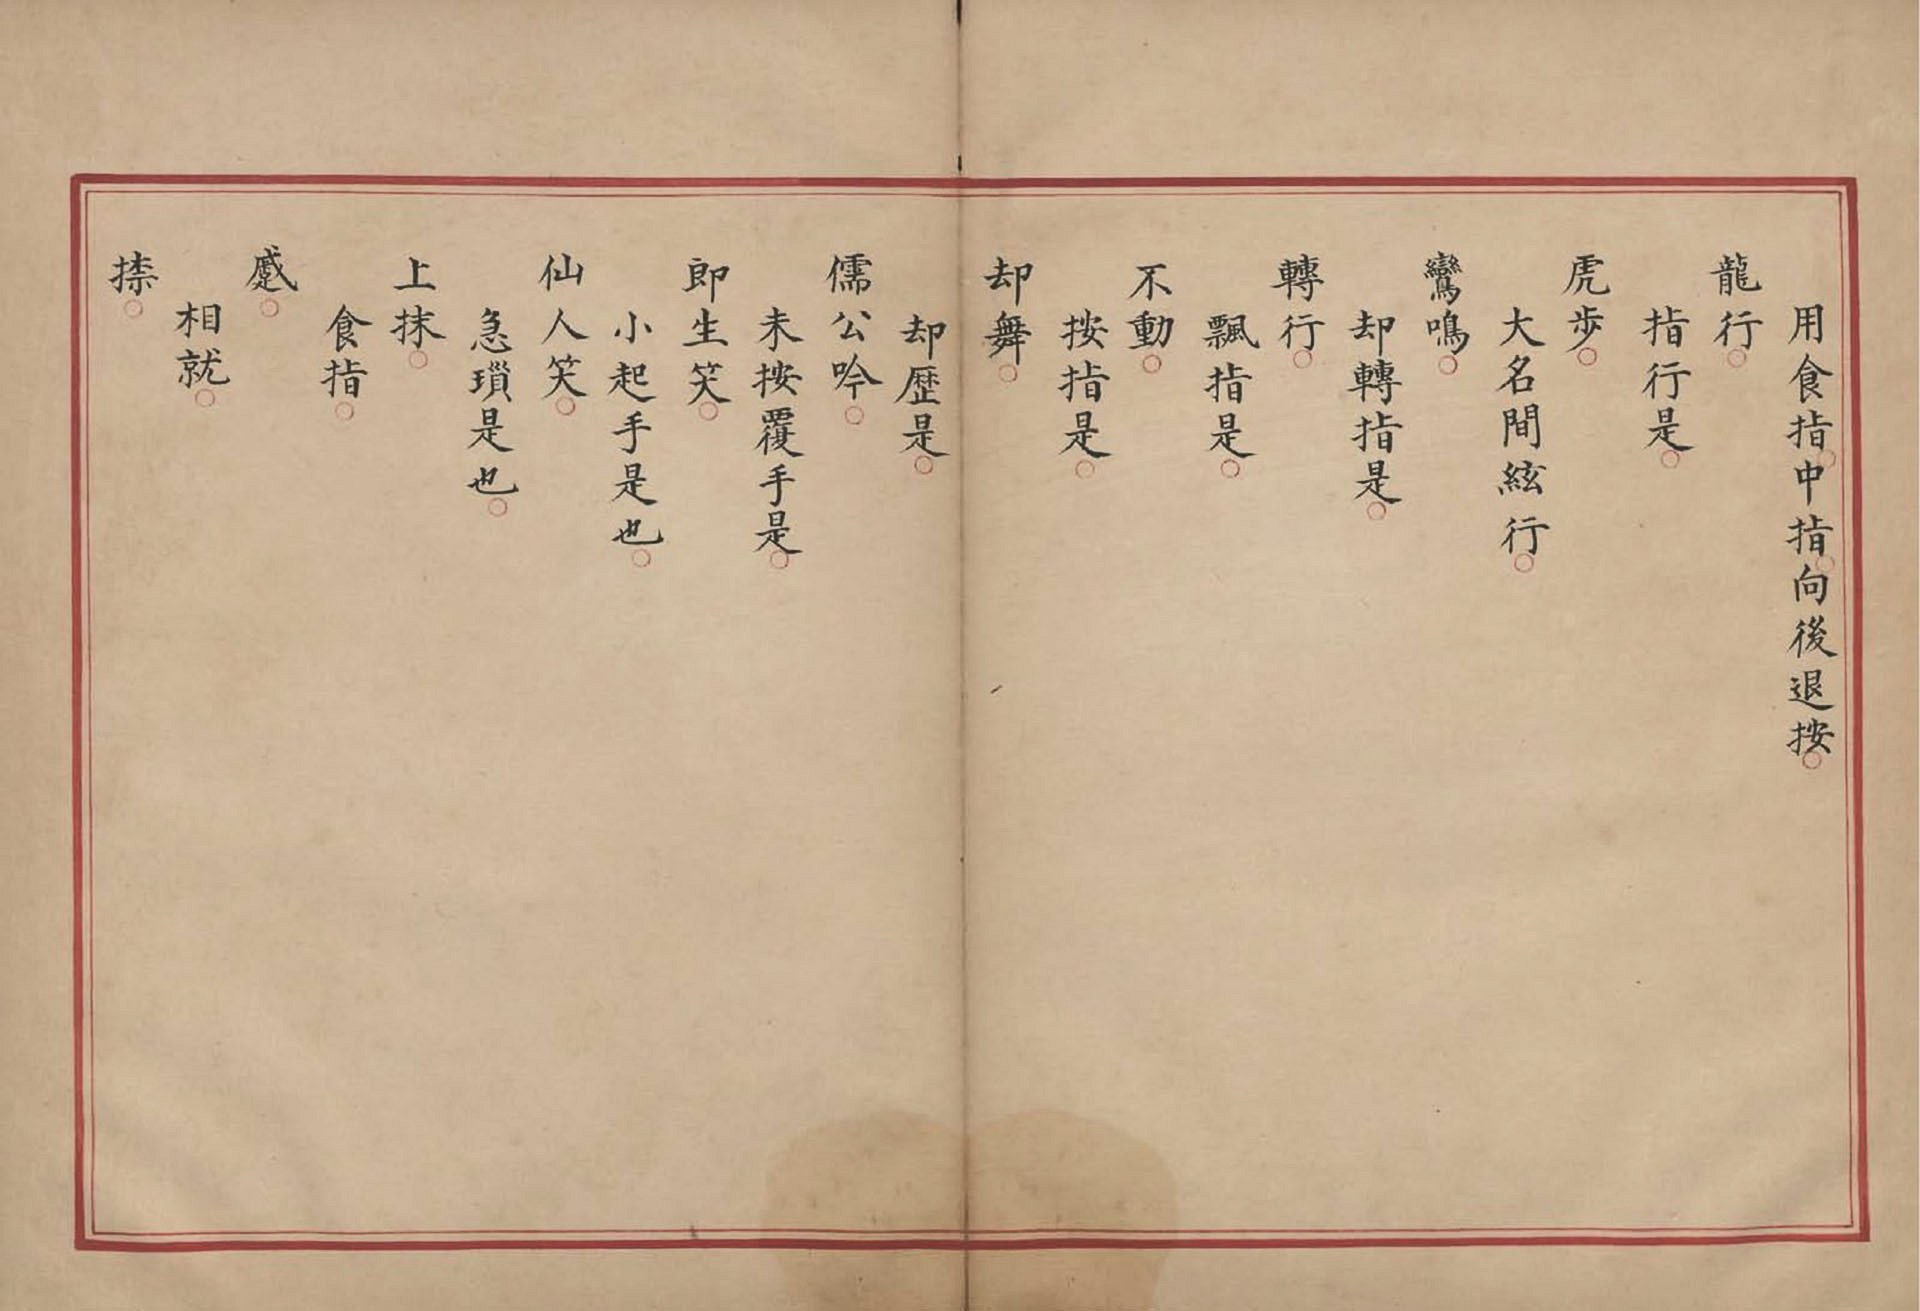 用食指中指向後退按
龍行
指行是
虎步
大名間絃行
鸞鳴
却轉指是
轉行
飄指是
不動
按指是
却舞
却歷是
儒公吟
未按覆手是
即生笑
小起手是也
仙人笑
急瑣是也
上抹
食指
蹙
相就
捺